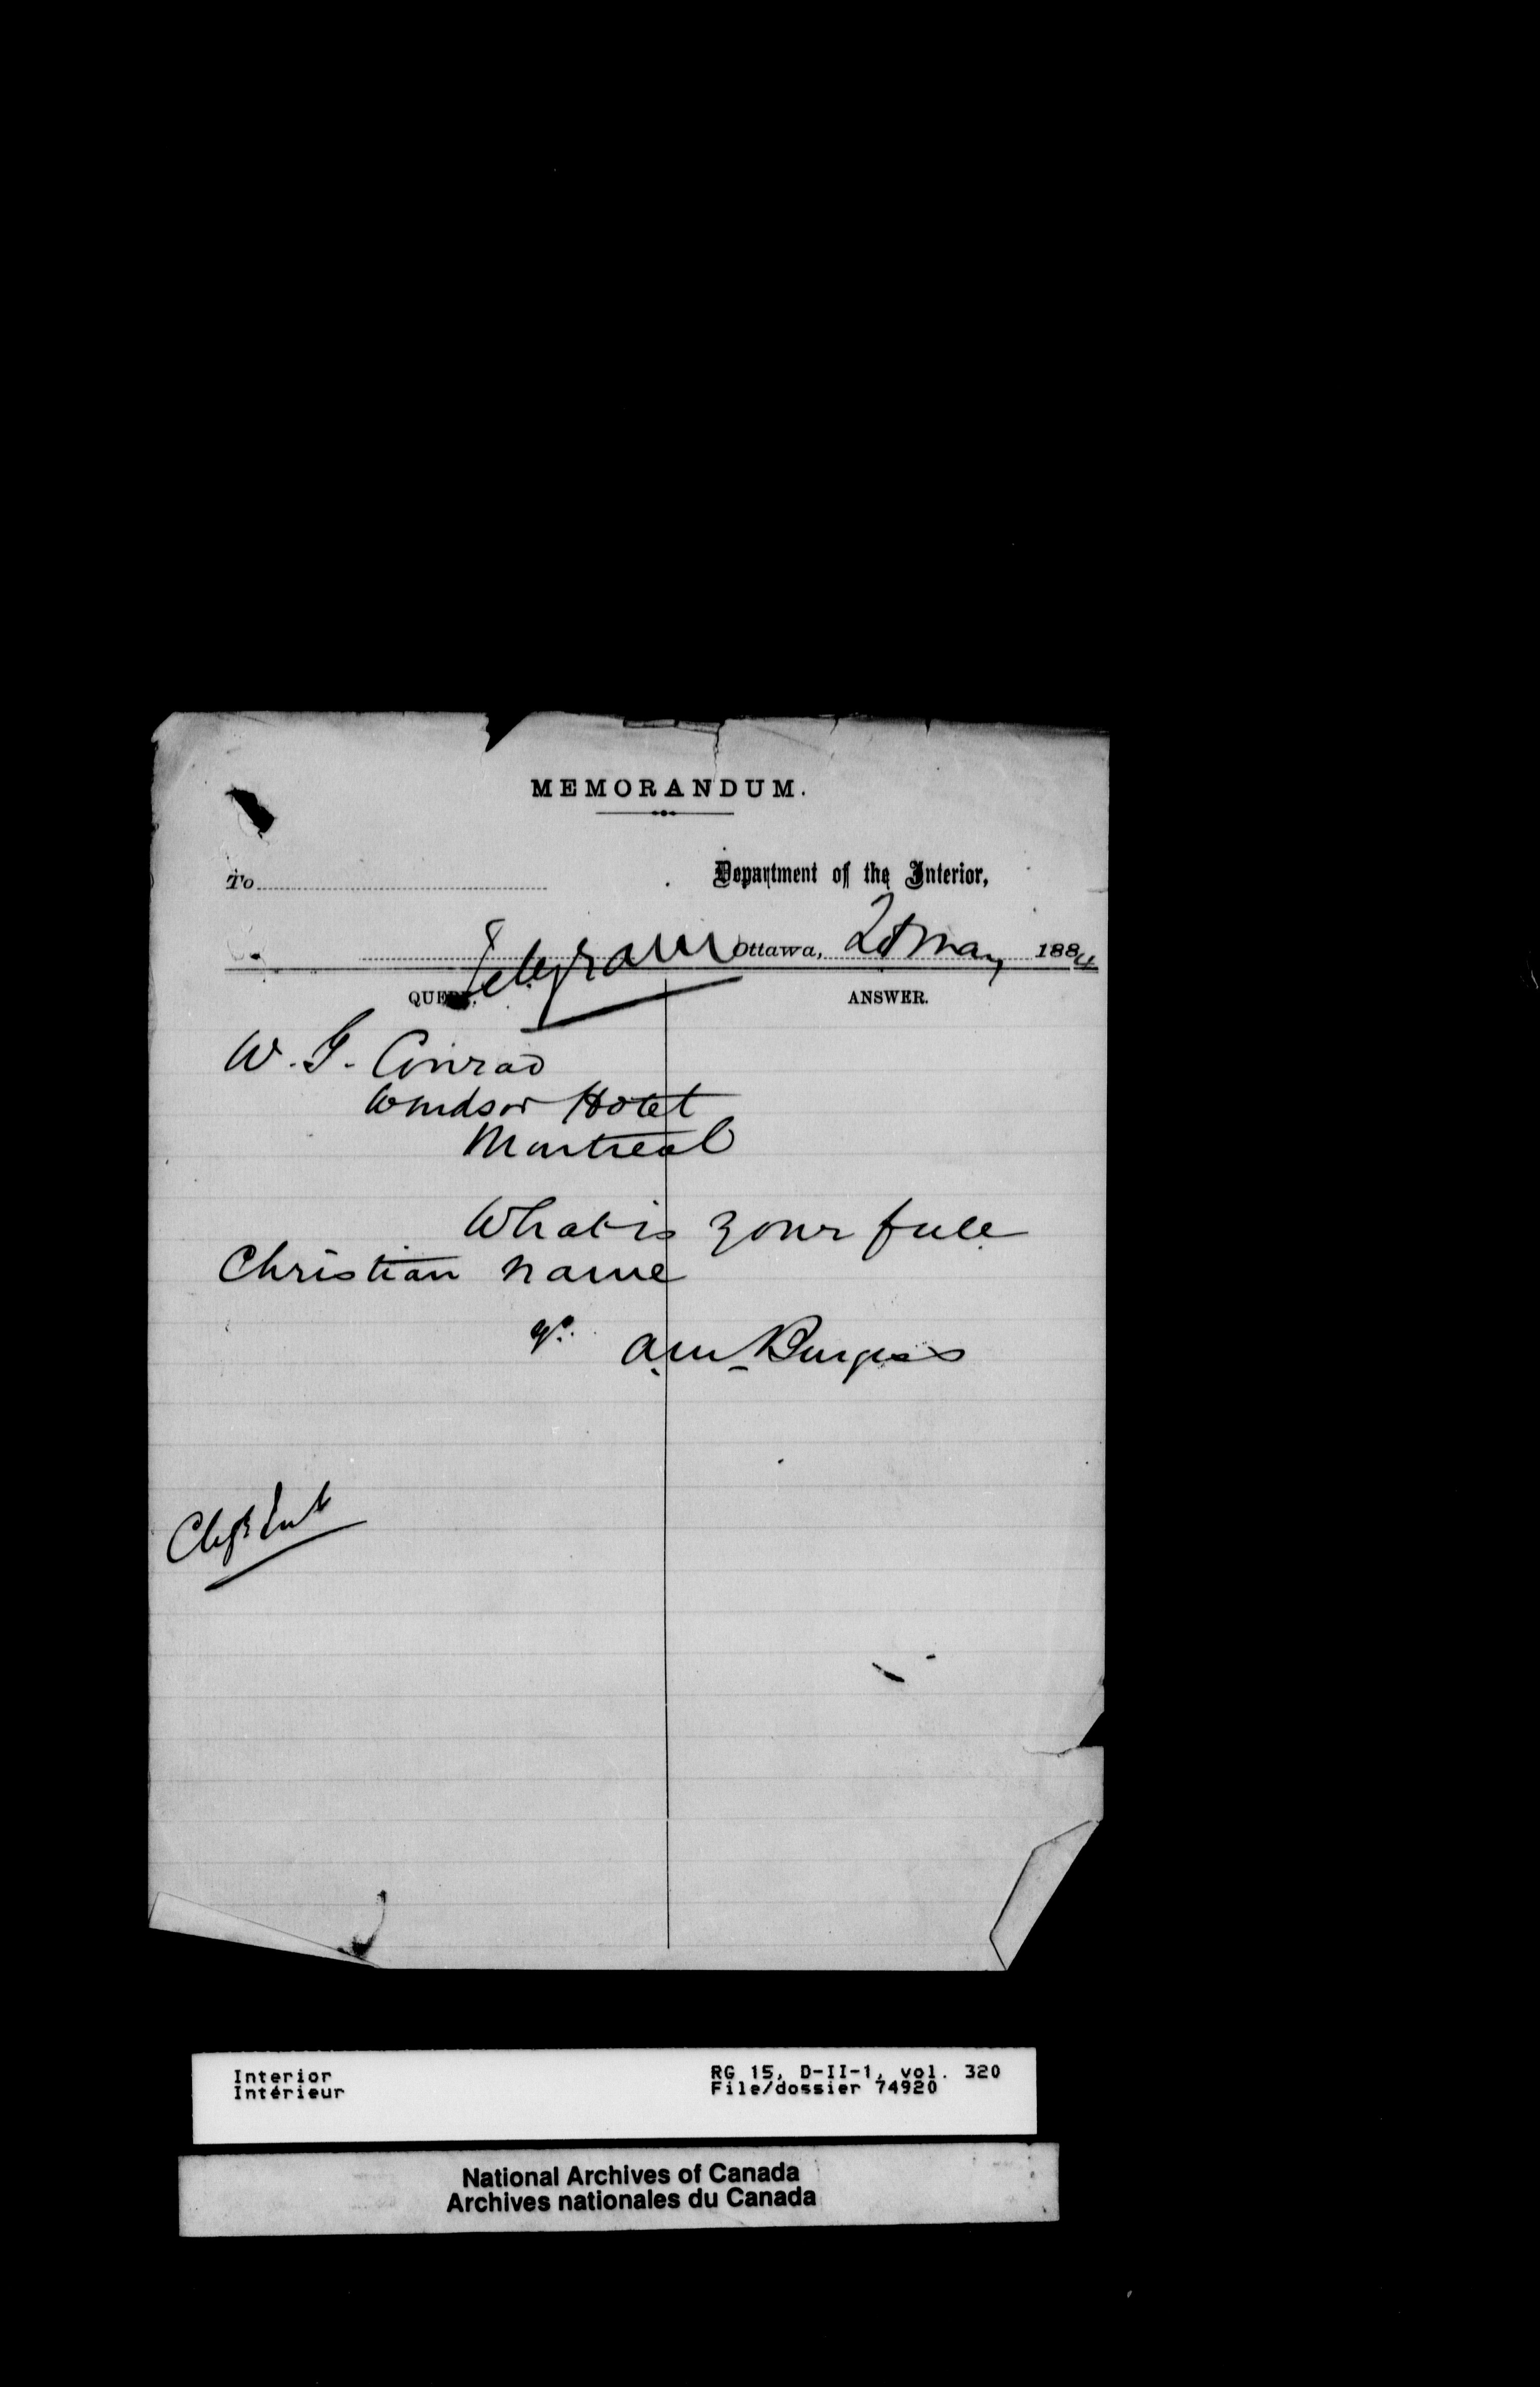 MEMORANDUM.
To
Department of the Interior,
Telegram
Ottawa, May 1884
QUERY.
ANSWER.
W. G. Conrad
Windsor Hotel
Montreal
What is your full
Christian name
A. M. Burgess
Interior
Intérieur
RG 15, D-II-1, vol. 320
File/dossier 74920
National Archives of Canada
Archives nationales du Canada